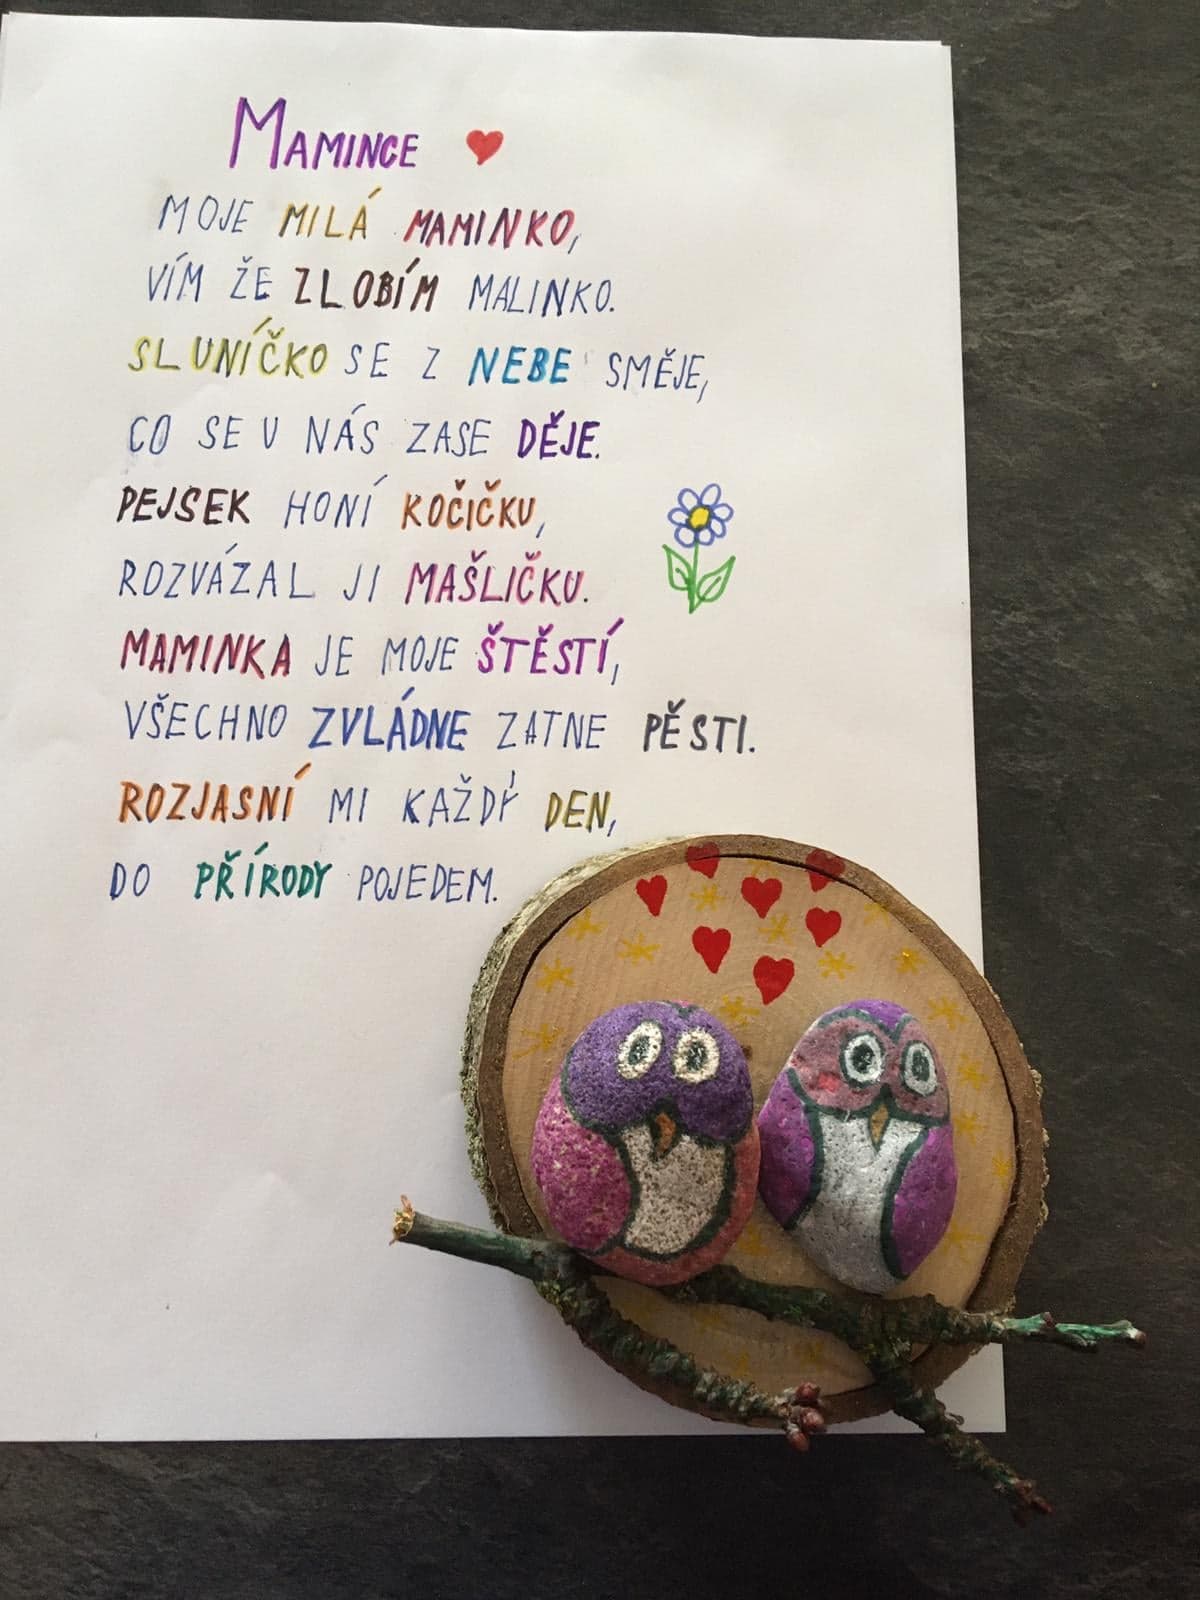 MAMINCE
MOJE MILÁ MAMINKO,
VÍM ŽE ZLOBÍM MALINKO.
SLUNÍČKO SE Z NEBE SMĚJE,
CO SE U NÁS ZASE DĚJE.
PEJSEK HONÍ KOČIČKU,
ROZVÁZAL JI MAŠLIČKU.
MAMINKA JE MOJE ŠTĚSTÍ,
VŠECHNO ZVLÁDNE ZATNE PĚSTI.
ROZJASNÍ MI KAŽDÝ DEN,
DO PŘÍRODY POJEDEM.